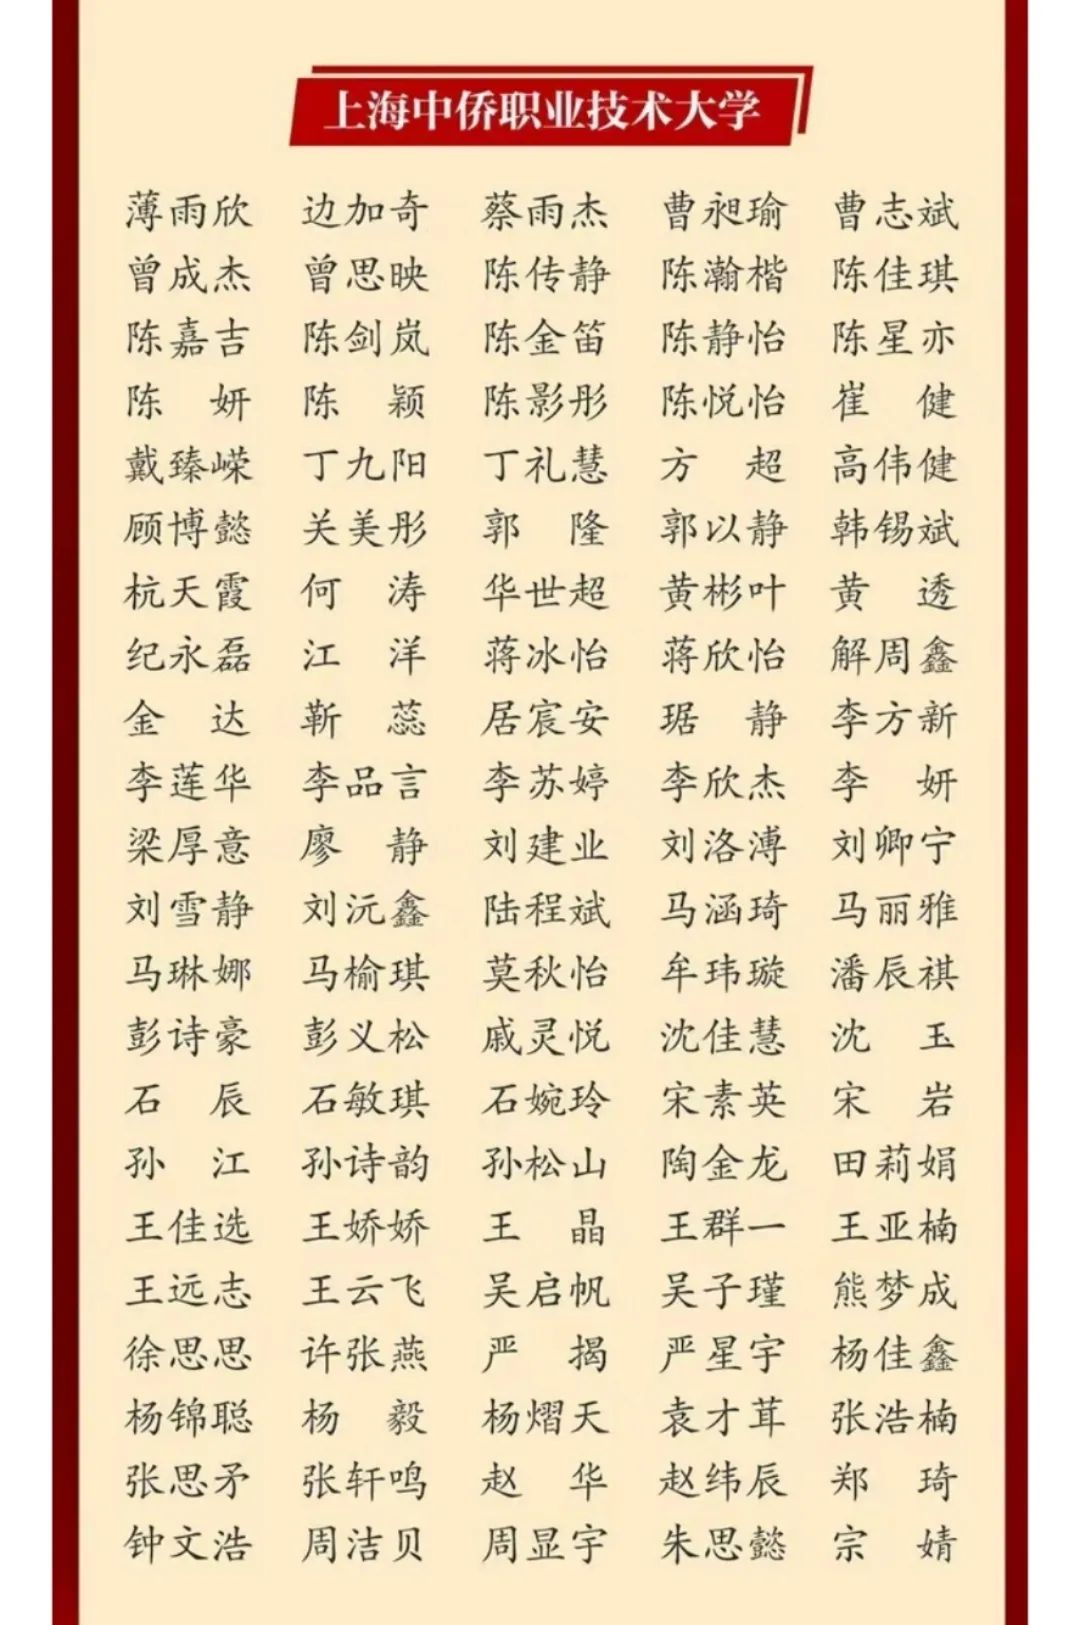 上海中侨职业技术大学
薄雨欣 边加奇 蔡雨杰 曹昶瑜 曹志斌
曾成杰 曾思映 陈传静 陈瀚楷 陈佳琪
陈嘉吉 陈剑岚 陈金笛 陈静怡 陈星亦
陈 妍 陈 颖 陈影彤 陈悦怡 崔 健
戴臻嵘 丁九阳 丁礼慧 方 超 高伟健
顾博懿 关美彤 郭 隆 郭以静 韩锡斌
杭天霞 何 涛 华世超 黄彬叶 黄 透
纪永磊 江 洋 蒋冰怡 蒋欣怡 解周鑫
金 达 靳 蕊 居宸安 琚 静 李方新
李莲华 李品言 李苏婷 李欣杰 李 妍
梁厚意 廖 静 刘建业 刘洛溥 刘卿宁
刘雪静 刘沅鑫 陆程斌 马涵琦 马丽雅
马琳娜 马榆琪 莫秋怡 牟玮璇 潘辰祺
彭诗豪 彭义松 戚灵悦 沈佳慧 沈 玉
石 辰 石敏琪 石婉玲 宋素英 宋 岩
孙 江 孙诗韵 孙松山 陶金龙 田莉娟
王佳选 王娇娇 王 晶 王群一 王亚楠
王远志 王云飞 吴启帆 吴子瑾 熊梦成
徐思思 许张燕 严 揭 严星宇 杨佳鑫
杨锦聪 杨 毅 杨熠天 袁才茸 张浩楠
张思矛 张轩鸣 赵 华 赵纬辰 郑 琦
钟文浩 周洁贝 周显宇 朱思懿 宗 婧